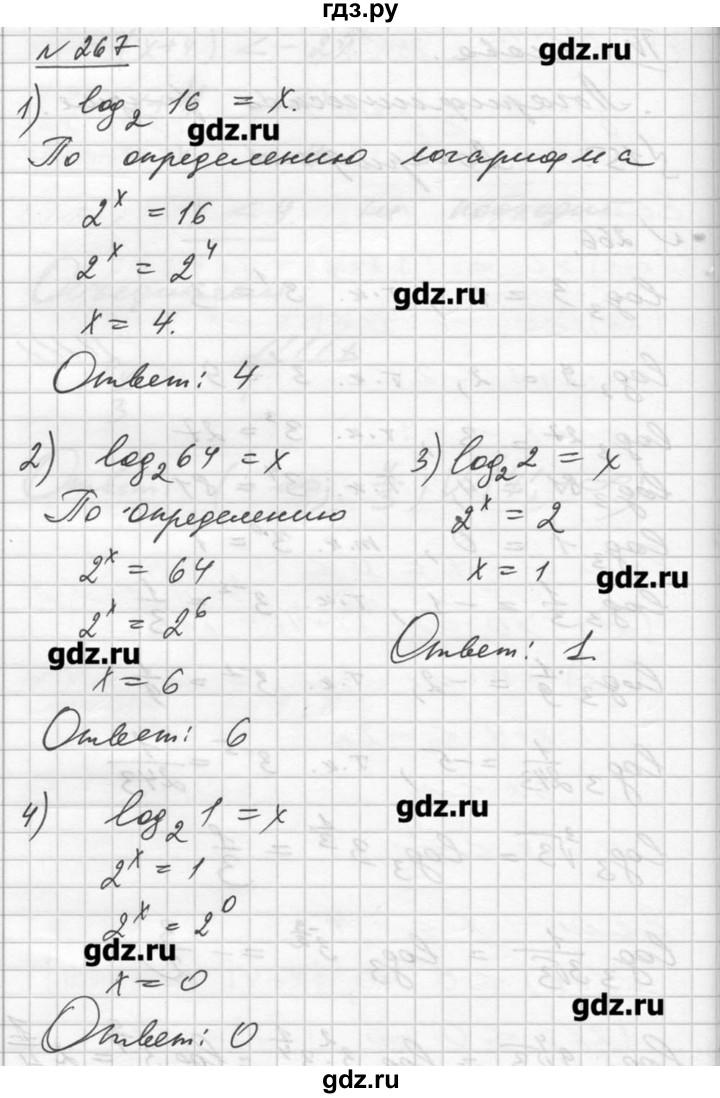 гдз.ру
№ 267
gdz.ru
1) log₂ 16 = x.
gdz.ru
По определению логарифма
2ˣ = 16
2ˣ = 2⁴
gdz.ru
x = 4.
Ответ: 4
2) log₂64 = x
По определению
2ˣ = 64
2ˣ = 2⁶
gdz.ru
x = 6
Ответ: 6
3) log₂2 = x
2ˣ = 2
x = 1
gdz.ru
Ответ: 1.
4) log₂ 1 = x
gdz.ru
2ˣ = 1
2ˣ = 2⁰
gdz.ru
x = 0
gdz.ru
Ответ: 0
gdz.ru